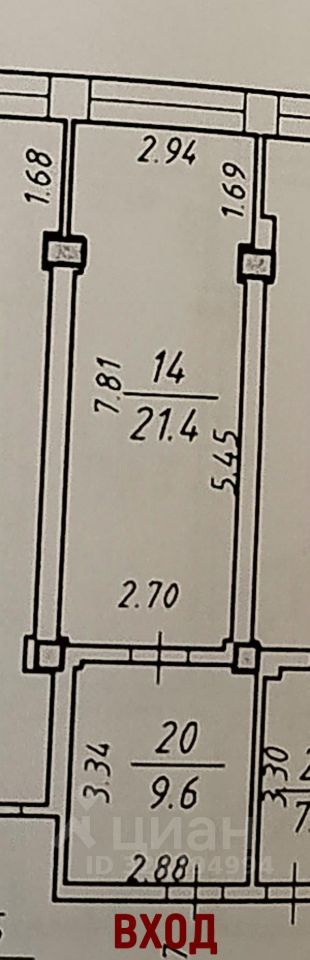 2.94
1.68
1.69
14
21.4
7.81
5.45
2.70
20
9.6
3.34
3.30
2.88
циан
ВХОД